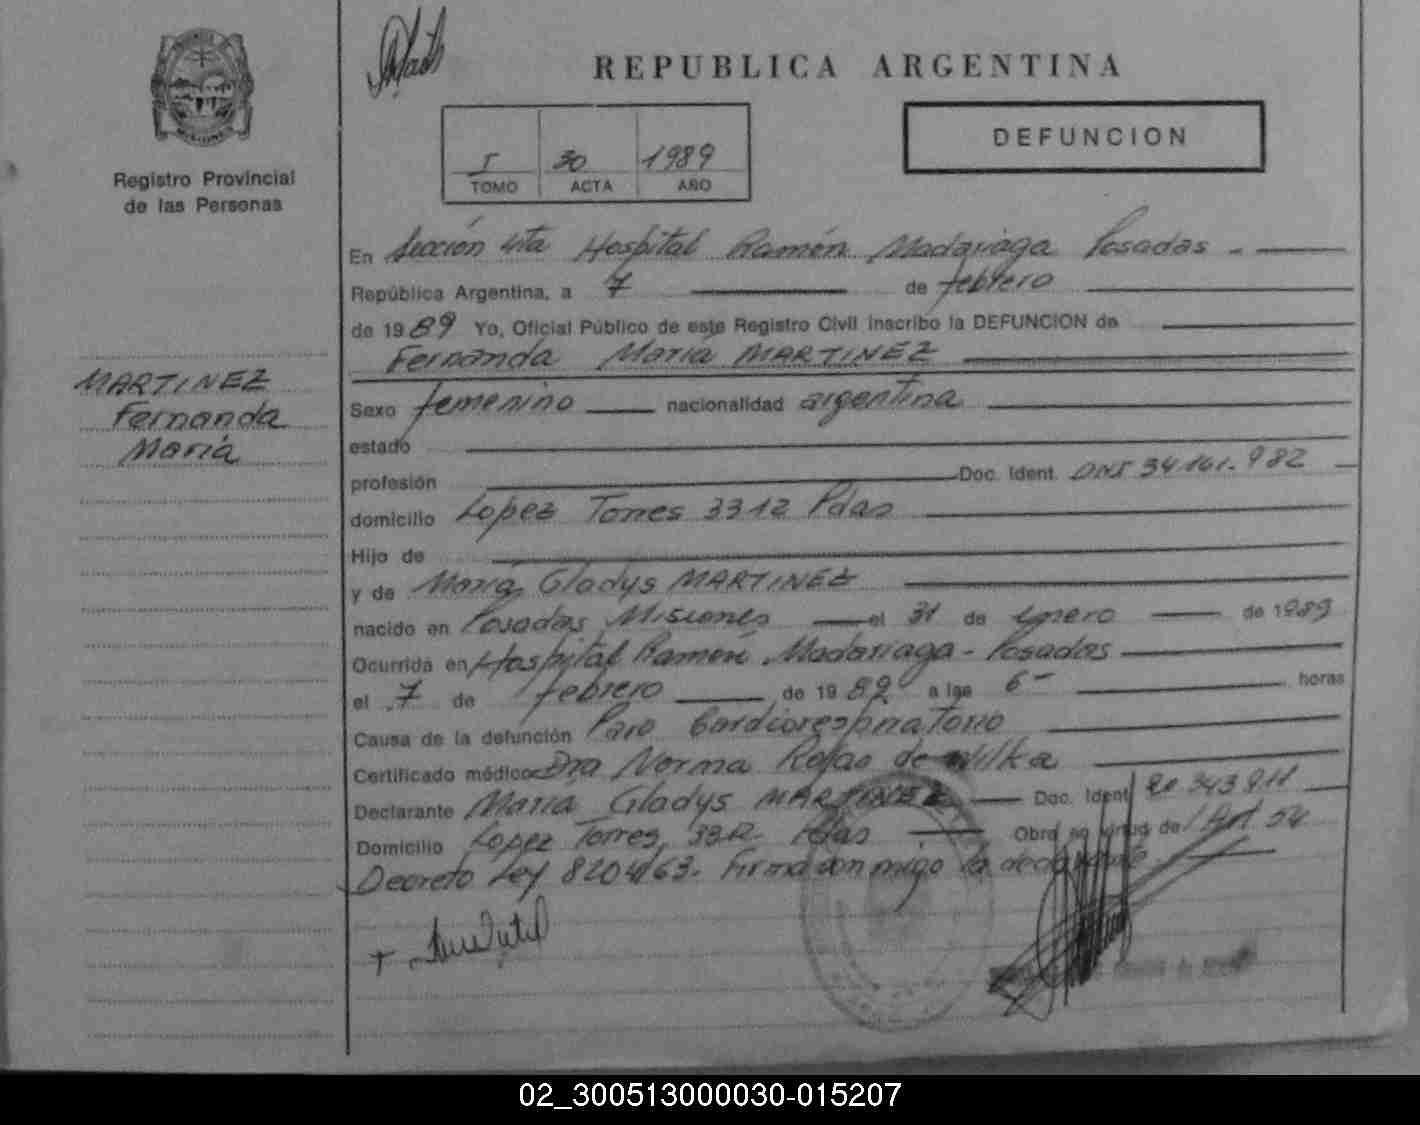 REPUBLICA ARGENTINA
DEFUNCION
I 30 1989
TOMO ACTA AÑO
Registro Provincial
de las Personas
MARTINEZ
Fernanda
María
En Sección 4ta Hospital Ramón Madariaga Posadas -
República Argentina, a 7 de febrero
de 1989 Yo, Oficial Público de este Registro Civil inscribo la DEFUNCION de
Fernanda María MARTINEZ
Sexo femenino nacionalidad argentina
estado
profesión Doc. Ident. DNI 34.161.982
domicilio Lopez Torres 3312 Pdas
Hijo de
y de María Gladys MARTINEZ
nacido en Posadas Misiones el 31 de enero de 1989
Ocurrida en Hospital Ramón Madariaga - Posadas
el 7 de febrero de 1989 a las 6- horas
Causa de la defunción Paro Cardiorespiratorio
Certificado médico Dra Norma Rojas de Wilka
Declarante María Gladys MARTINEZ Doc. Ident. 20.343.911
Domicilio Lopez Torres 3312- Pdas Obra en virtud de Art 54
Decreto Ley 8204/63. Firma con migo la declarante
02_300513000030-015207